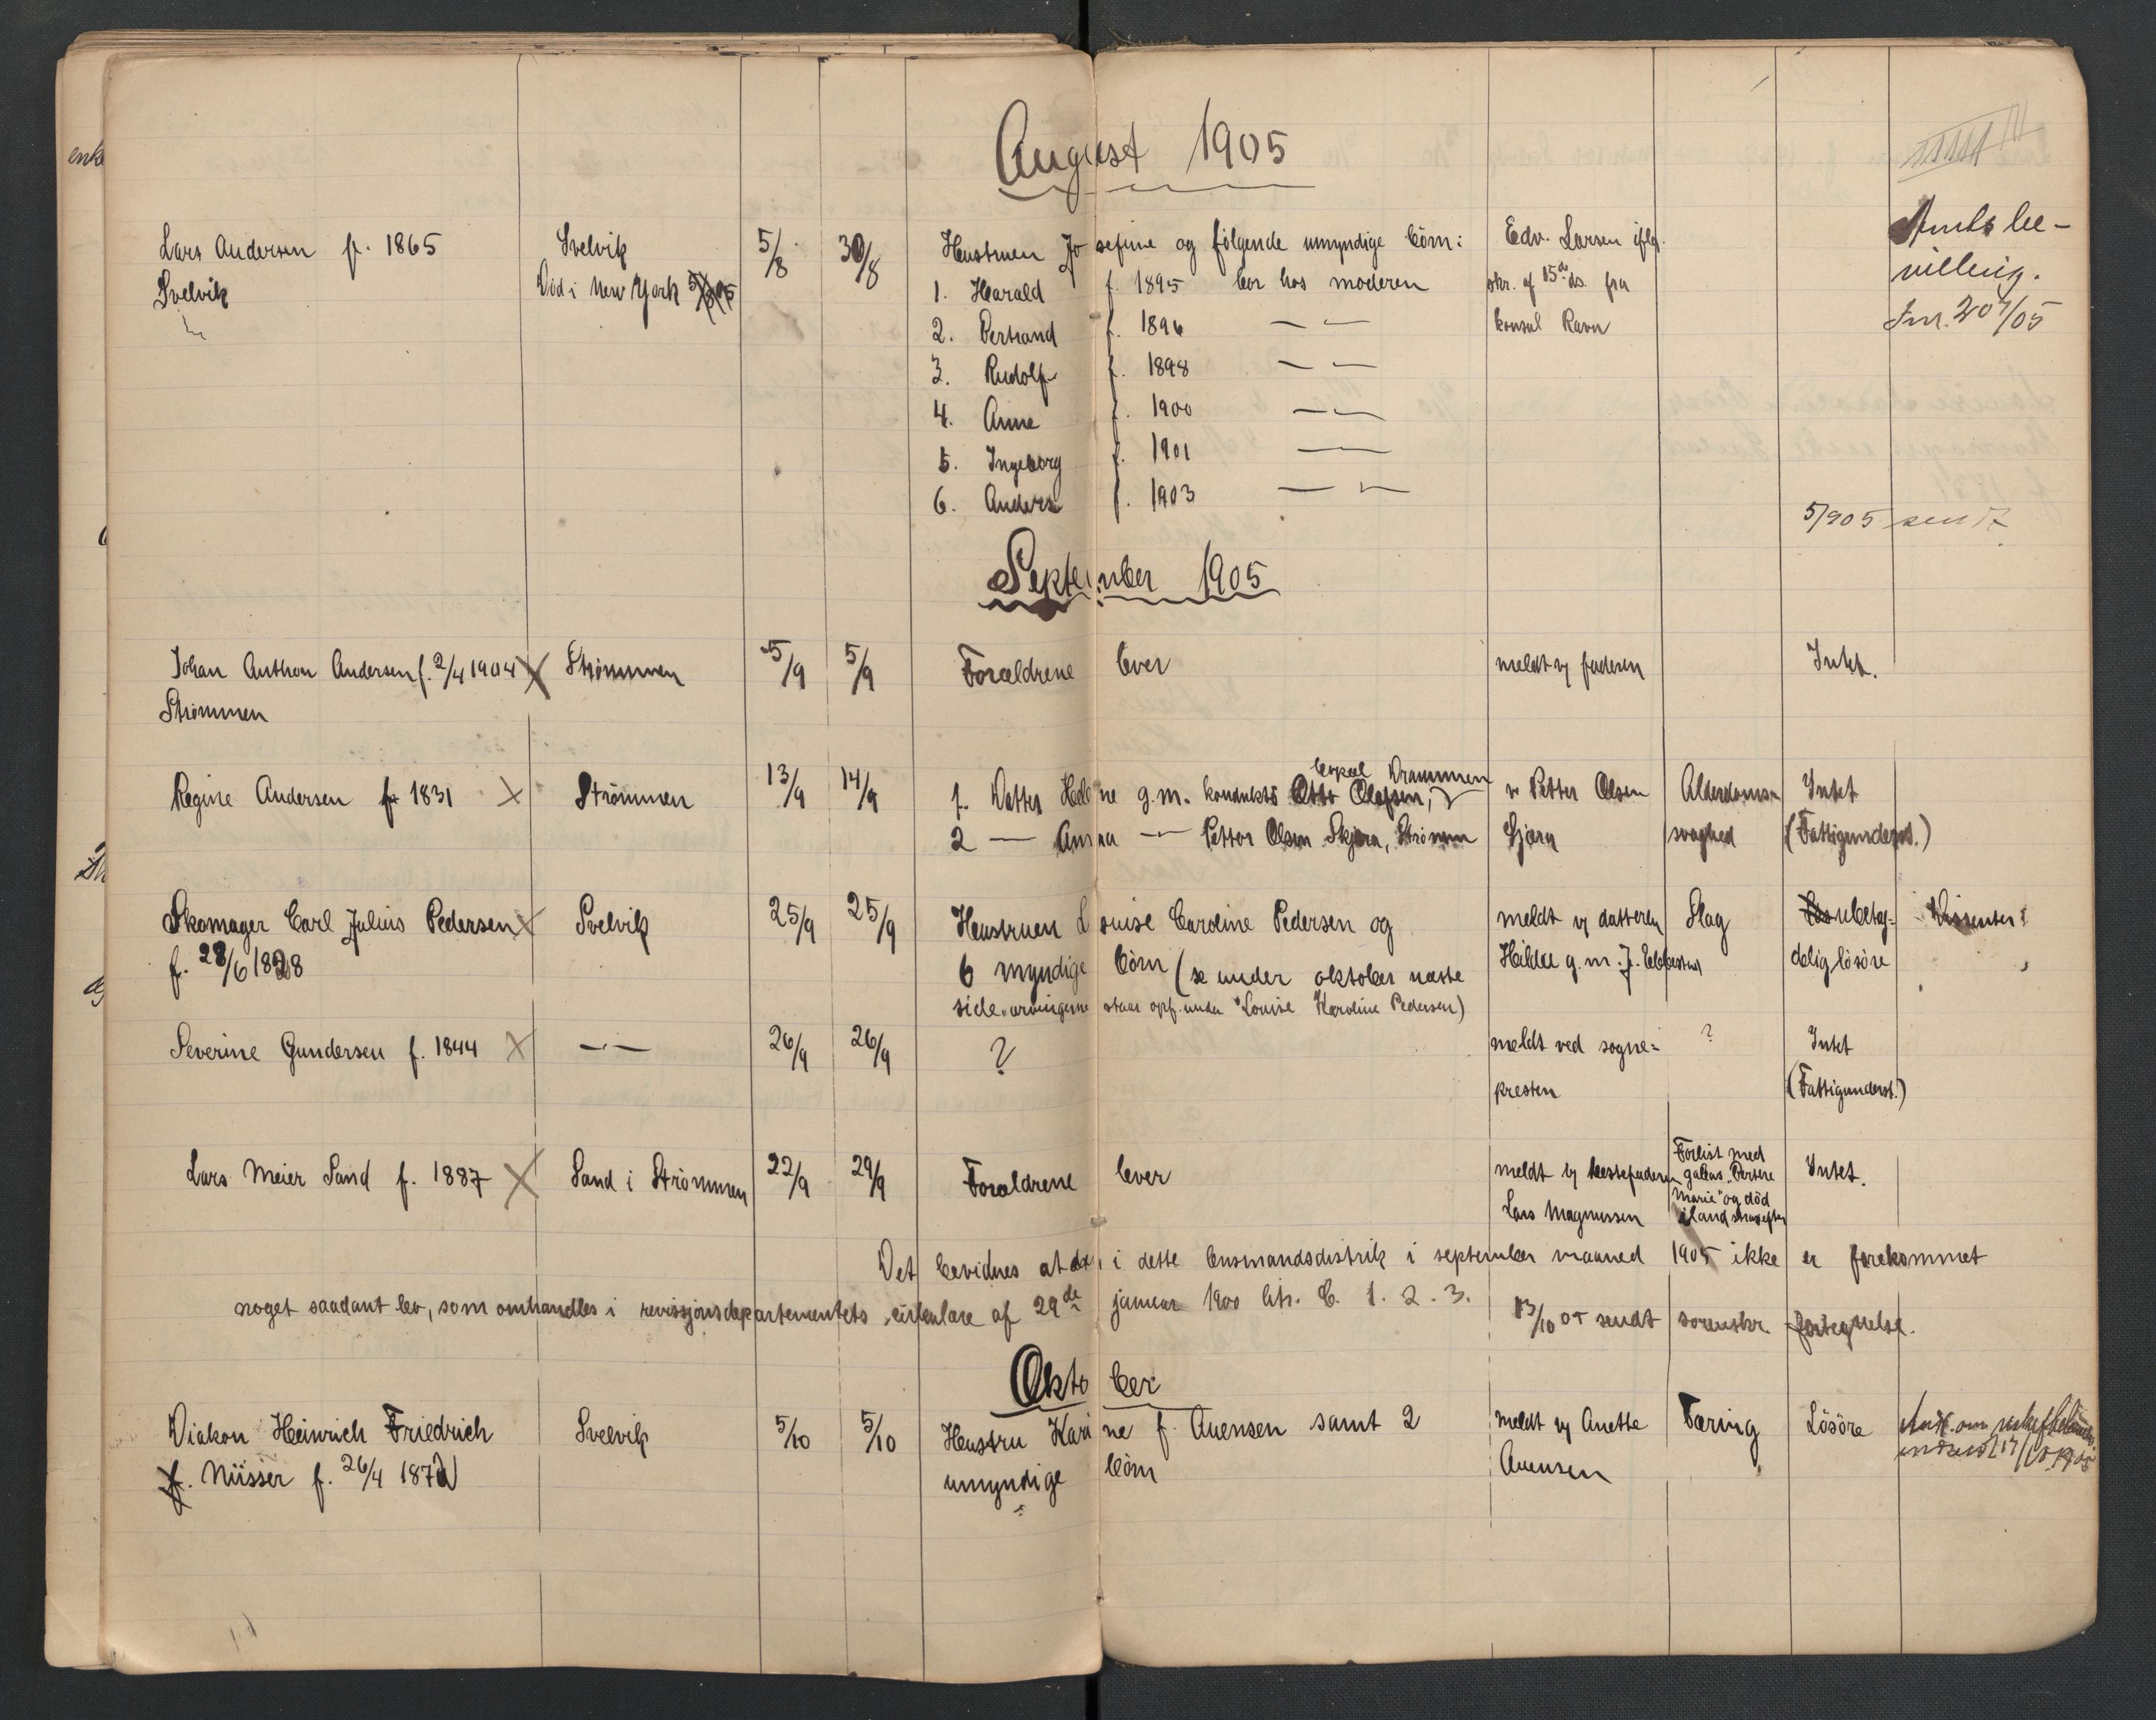 August 1905
Lars Andersen f. 1865 Svelvik 5/8 30/8 Hustruen Josefine og følgende umyndige börn: Edv. Larsen ifløl. Amtsbe-
Svelvik Död i New York 1. Harald f. 1895 bor hos moderen skr. af 15de ds. fra villing.
2. Bertrand f. 1896 — — konsul Ravn Jnr. 207/05
3. Rudolf f. 1898 — —
4. Anne f. 1900 — —
5. Ingeborg f. 1901 —
6. Anders f. 1903 — —
5/905 sendt
September 1905
Johan Anthon Andersen f. 2/4 1904 X Strømmen 5/9 5/9 Forældrene lever meldt v/ faderen Intet.
Strömmen
bopæl Drammen
Regine Andersen f. 1831 X Strömmen 13/9 14/9 1. Datter Helene g.m. konduktö Otto Olafsen, v. Petter Olsen Alderdoms- Intet
2 — Anna — Petter Olsen Skjæra, Strömmen svaghed (Fattigunderst.)
Skomager Carl Julius Pedersen X Svelvik 25/9 25/9 Hustruen Louise Caroline Pedersen og meldt v/ datteren Slag ubetay- Dissenter
f. 28/6 1828 6 myndige börn (se under oktober næste Hilda g.m. J. delig lösöre
side. arvingerne staar opf. under "Louise Karoline Pedersen)
Severine Gundersen f. 1844 X — — 26/9 26/9 ? meldt ved sogne- ? Intet
presten (Fattigunderst.)
Forlist med
Lars Meier Sand f. 1887 X Sand i Strömmen 22/9 29/9 Forældrene lever meldt v/ bestefaderen galeas "Bertine Intet.
Marie" og död
Lars Magnussen iland straxefter
Det bevidnes at der i dette lensmandsdistrik i september maaned 1905 ikke er forekommet
noget saadant bo, som omhandles i revissjonsdepartementets cirkulare af 29de januar 1900 litr. C. 1. 2. 3. 13/10 05 sendt sorenskr. fortegnelse.
Oktober
Diakon Heinrich Friedrich Svelvik 5/10 5/10 Hustru Karine f. Auensen samt 2 meldt v/ Anette Tæring Lösöre
Nüsser f. 26/4 1872 umyndige börn Auensen indsendt 17/10 1905